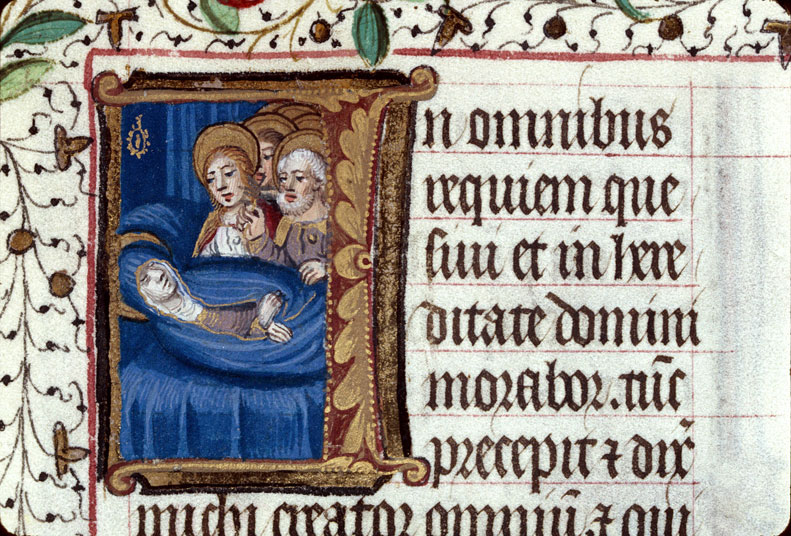 In omnibus
requiem que
siui et in here
ditate domini
morabor. tūc
precepit ⁊ dix̄
michi creator omniū ⁊ qui